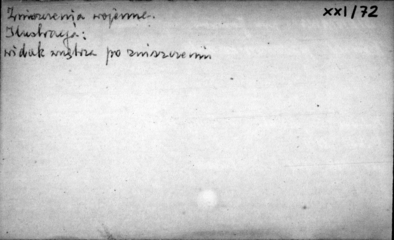 Zniszczenia wojenne.
XXI/72
Ilustracja:
widok wnętrza po zniszczeniu